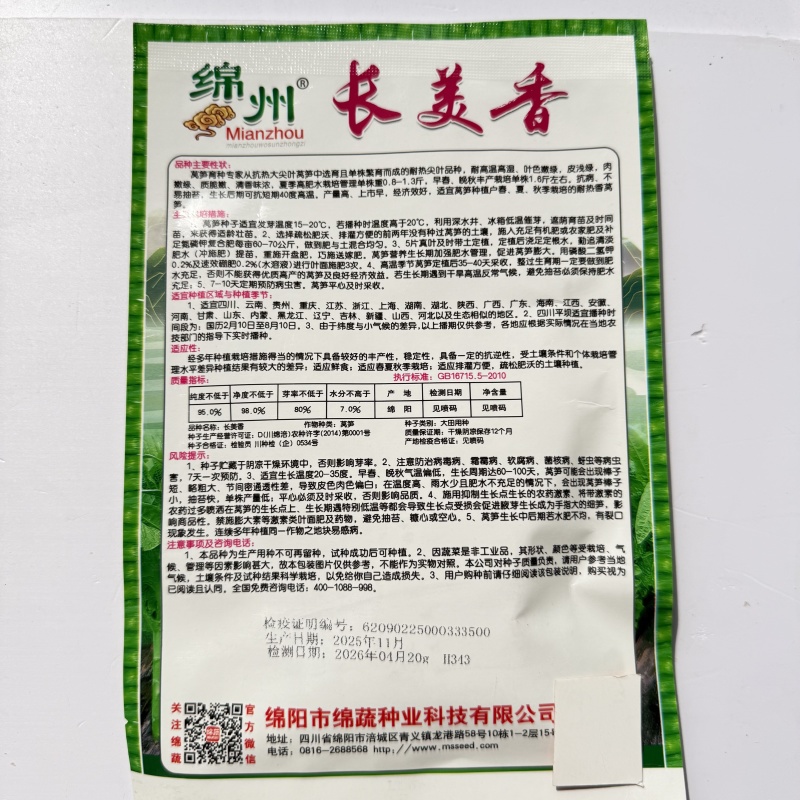 绵州®
Mianzhou
mianzhouwosunzhongzi
长美香
品种主要性状：
莴笋育种专家从抗热大尖叶莴笋中选育且单株繁育而成的耐热尖叶品种，耐高温高湿、叶色嫩绿，皮浅绿，肉
嫩绿、质脆嫩、清香味浓，夏季高肥水栽培管理单株重0.8-1.3斤，早春、晚秋丰产栽培单株1.6斤左右，抗病、不
易抽苔，生长后期可抗短期40度高温，产量高、上市早，经济效好，适宜莴笋种植户春、夏、秋季栽培的耐热香莴
笋。
主要栽培措施：
1、莴笋种子适宜发芽温度15-20℃，若播种时温度高于20℃，利用深水井、冰箱低温催芽，遮荫育苗及时间
苗，来获得适龄壮苗。2、选择疏松肥沃、排灌方便的前两年没有种过莴笋的土壤，施入充足有机肥或农家肥及补
足氮磷钾复合肥每亩60-70公斤，做到肥与土混合均匀。3、5片真叶及时带土定植，定植后浇足定根水，勤追清淡
肥水（冲施肥）提苗，重施开盘肥，巧施送嫁肥，莴笋营养生长期加强肥水管理，促进莴笋膨大。用磷酸二氢钾
0.2%及速效硼肥0.2%（水溶液）进行叶面施肥3次。4、高温季节莴笋定植后35-40天采收，整过生育期一定要做到肥
水充足，否则不能获得优质高产的莴笋及良好经济效益。若生长期遇到干旱高温反常气候，避免抽苔必须保持肥水
充足；5、7-10天定期预防病虫害。莴笋平心及时采收。
适宜种植区域与种植季节：
1、适宜四川、云南、贵州、重庆、江苏、浙江、上海、湖南、湖北、陕西、广西、广东、海南、江西、安徽、
河南、甘肃、山东、内蒙、黑龙江、辽宁、吉林、新疆、山西、河北以及生态相似的地区。2、四川平坝适宜播种时
间段为：国历2月10日至8月10日。3、由于纬度与小气候的差异，以上播期仅供参考，各地应根据实际情况在当地农
技部门的指导下实时播种。
适应性：
经多年种植栽培措施得当的情况下具备较好的丰产性，稳定性，具备一定的抗逆性，受土壤条件和个体栽培管
理水平差异种植结果有较大的差异；适应鲜食；适应春夏秋季栽培；适应排灌方便，疏松肥沃的土壤种植。
质量指标： 执行标准：GB16715.5-2010
纯度不低于 净度不低于 芽率不低于 水分不高于 产 地 检测日期 净含量
95.0% 98.0% 80% 7.0% 绵 阳 见喷码 见喷码
品种名称：长美香 作物种类：莴笋 种子类别：大田用种
种子生产经营许可证：D(川绵涪)农种许字(2014)第0001号 质量保证期：干燥阴凉保存12个月
种子合格证：检验员 川种检（企）0534号 产地检疫合格证：见喷码
风险提示：
1、种子贮藏于阴凉干燥环境中，否则影响芽率。2、注意防治病毒病、霜霉病、软腐病、菌核病、蚜虫等病虫
害，7天一次预防。3、适宜生长温度20-35度，早春、晚秋气温偏低，生长周期达60-100天，莴笋可能会出现棒子
短、略粗大、节间密通透性差，导致皮色肉色偏白；在温度高、雨水少且肥水不充足的情况下，会出现莴笋棒子
小，抽苔快，单株产量低；平心必须及时采收，否则影响品质。4、施用抑制生长点生长的农药激素，将带激素的
农药过多喷洒在莴笋的生长点上、生长期遇特别低温等都会导致生长点受损会促进腋芽生成为手指大的细笋，影
响商品性。禁施膨大素等激素类叶面肥及药物，避免抽苔、糠心或空心。5、莴笋生长中后期若水肥不均，有裂口
现象发生。连续多年种植同一作物之地块易感病。
注意事项及咨询电话：
1、本品种为生产用种不可再留种，试种成功后可种植。2、因蔬菜是非工业品，其形状、颜色等受栽培、气
候、管理等因素影响甚大，故本包装图片仅供参考，不能作为实物对照。本公司对种子质量负责，请用户参考当地
气候，土壤条件及试种结果科学栽培，以免给你自己造成损失。3、用户购种前请仔细阅读该包装说明，购买视为
已阅读且认同，全国免费咨询电话：400-1088-998。
检疫证明编号：62090225000333500
生产日期：2025年11月
检测日期：2026年04月20g H343
关注绵蔬
绵蔬
官方微信
绵阳市绵蔬种业科技有限公司
地址：四川省绵阳市涪城区青义镇龙港路58号10栋1-2层15号
电话：0816-2688568 http://www.msseed.com